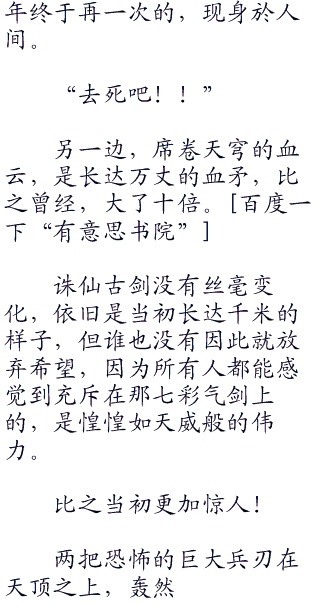 年终于再一次的，现身於人
间。
“去死吧！！”
另一边，席卷天穹的血
云，是长达万丈的血矛，比
之曾经，大了十倍。[百度一
下“有意思书院”]
诛仙古剑没有丝毫变
化，依旧是当初长达千米的
样子，但谁也没有因此就放
弃希望，因为所有人都能感
觉到充斥在那七彩气剑上
的，是惶惶如天威般的伟
力。
比之当初更加惊人！
两把恐怖的巨大兵刃在
天顶之上，轰然